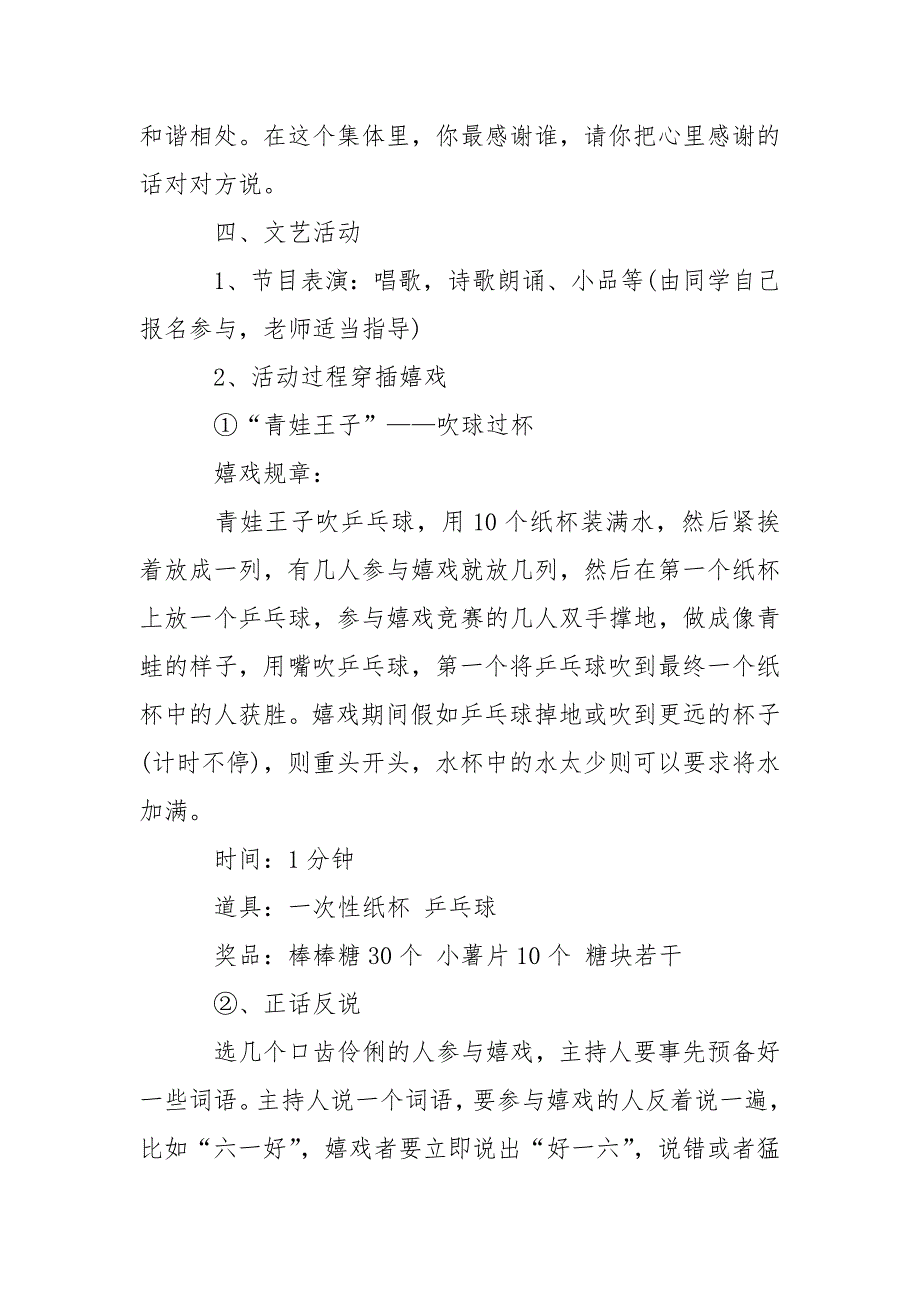 和谐相处。在这个集体里，你最感谢谁，请你把心里感谢的
话对对方说。
四、文艺活动
1、节目表演：唱歌，诗歌朗诵、小品等(由同学自己
报名参与，老师适当指导)
2、活动过程穿插嬉戏
①“青娃王子”——吹球过杯
嬉戏规章：
青娃王子吹乒乓球，用 10 个纸杯装满水，然后紧挨
着放成一列，有几人参与嬉戏就放几列，然后在第一个纸杯
上放一个乒乓球，参与嬉戏竞赛的几人双手撑地，做成像青
蛙的样子，用嘴吹乒乓球，第一个将乒乓球吹到最终一个纸
杯中的人获胜。嬉戏期间假如乒乓球掉地或吹到更远的杯子
(计时不停)，则重头开头，水杯中的水太少则可以要求将水
加满。
时间：1 分钟
道具：一次性纸杯 乒乓球
奖品：棒棒糖 30 个 小薯片 10 个 糖块若干
②、正话反说
选几个口齿伶俐的人参与嬉戏，主持人要事先预备好
一些词语。主持人说一个词语，要参与嬉戏的人反着说一遍，
比如“六一好”，嬉戏者要立即说出“好一六”，说错或者猛